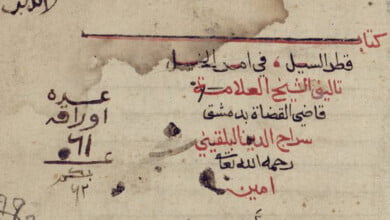 كتاب
قطر السيل في امر الخيل
تاليف الشيخ العلامة
قاضي القضاة بدمشق
سراج الدين البلقيني
رحمه الله تعالى
امين
عدة
اوراقه
٦١
٦٢